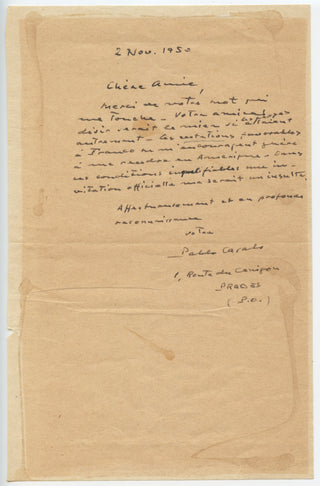 2 Nov. 1950
Chère Amie,
Merci de votre mot qui
me touche – Votre amical
désir serait le mien si
autrement – les votations favorables
à Franco ne m'encouragent guère
à me rendre en Amérique – Dans
ces conditions inqualifiables une in-
vitation officielle me serait un insulte.
Affectueusement et en profonde
reconnaissance
votre
Pablo Casals
1, Route du Canigou
PRADES
(P.O.)